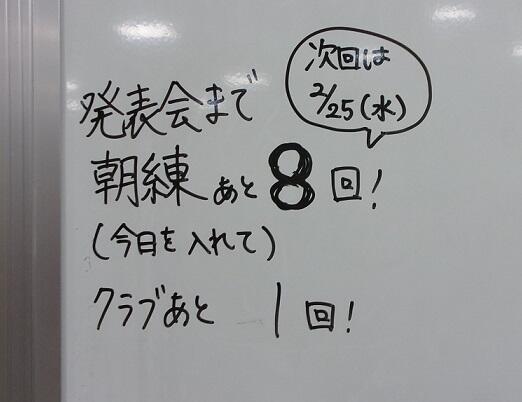 次回は
2/25(水)
発表会まで
朝練あと8回!
(今日を入れて)
クラブあと 1回!